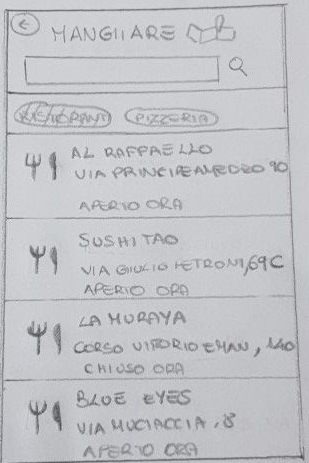 MANGIARE
RISTORANTI PIZZERIA
AL RAFFAELLO
VIA PRINCIPE AMEDEO 90
APERTO ORA
SUSHI TAO
VIA GIULIO PETRONI, 69C
APERTO ORA
LA MURAYA
CORSO VITTORIO EMAN, 140
CHIUSO ORA
BLUE EYES
VIA MUCIACCIA, 8
APERTO ORA